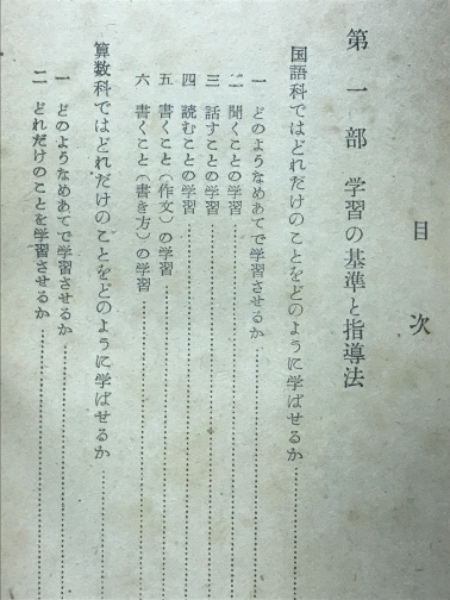 目次
第一部 学習の基準と指導法
国語科ではどれだけのことをどのように学ばせるか
一 どのようなめあてで学習させるか
二 聞くことの学習
三 話すことの学習
四 読むことの学習
五 書くこと(作文)の学習
六 書くこと(書き方)の学習
算数科ではどれだけのことをどのように学ばせるか
一 どのようなめあてで学習させるか
二 どれだけのことを学習させるか